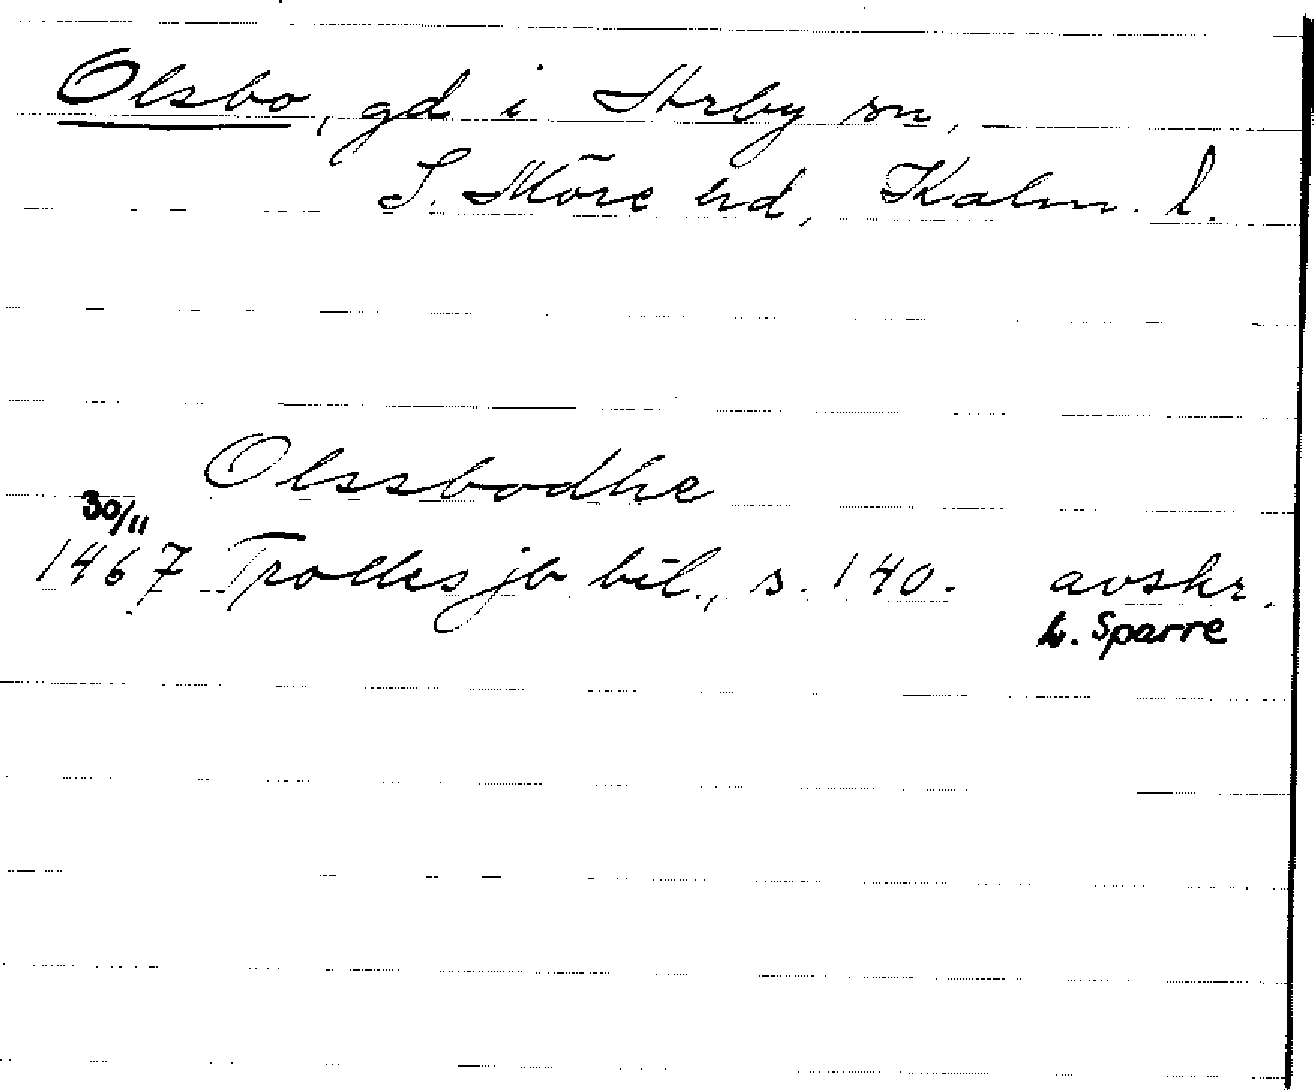 Olsbo, gd i Arby sn,
S. Möre hd, Kalm. l.
Olssbodhe
30/11
1467 Trolles jb bil., s. 140. avskr.
L. Sparre